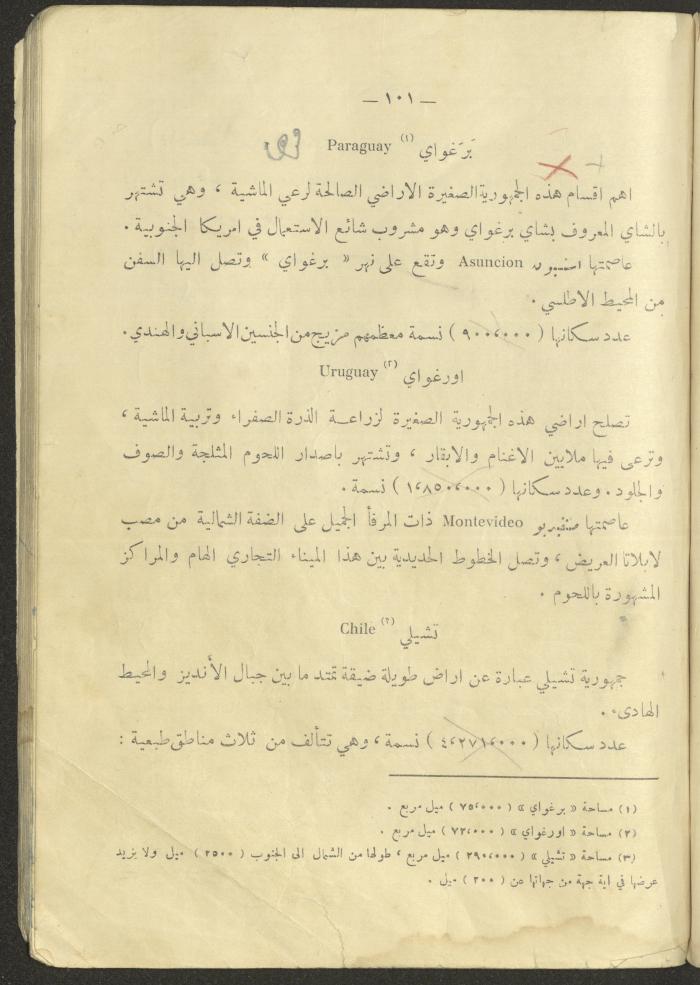 — ١٠١ —
بَرَغواي (١) Paraguay
اهم اقسام هذه الجمهورية الصغيرة الاراضي الصالحة لرعي الماشية ، وهي تشتهر
بالشاي المعروف بشاي برغواي وهو مشروب شائع الاستعمال في امريكا الجنوبية .
عاصمتها اسنسيون Asuncion وتقع على نهر « برغواي » وتصل اليها السفن
من المحيط الاطلسي .
عدد سكانها ( ٩٠٠،٠٠٠ ) نسمة معظمهم مزيج من الجنسين الاسباني والهندي .
اورغواي (٢) Uruguay
تصلح اراضي هذه الجمهورية الصغيرة لزراعة الذرة الصفراء وتربية الماشية ،
وترعى فيها ملايين الاغنام والابقار ، وتشتهر باصدار اللحوم المثلجة والصوف
والجلود . وعدد سكانها ( ١،٨٥٠،٠٠٠ ) نسمة .
عاصمتها Montevideo ذات المرفأ الجميل على الضفة الشمالية من مصب
لابلاتا العريض ، وتصل الخطوط الحديدية بين هذا الميناء التجاري الهام والمراكز
المشهورة باللحوم .
تشيلي (٣) Chile
جمهورية تشيلي عبارة عن اراض طويلة ضيقة تمتد ما بين جبال الأنديز والمحيط
الهادىء .
عدد سكانها ( ٤،٢٧١،٠٠٠ ) نسمة ، وهي تتألف من ثلاث مناطق طبعية :
(١) مساحة « برغواي » ( ٧٥،٠٠٠ ) ميل مربع .
(٢) مساحة « اورغواي » ( ٧٢،٠٠٠ ) ميل مربع .
(٣) مساحة « تشيلي » ( ٢٩٠،٠٠٠ ) ميل مربع ، طولها من الشمال الى الجنوب ( ٢٥٠٠ ) ميل ولا يزيد
عرضها في اية جهة من جهاتها عن ( ٢٠٠ ) ميل .